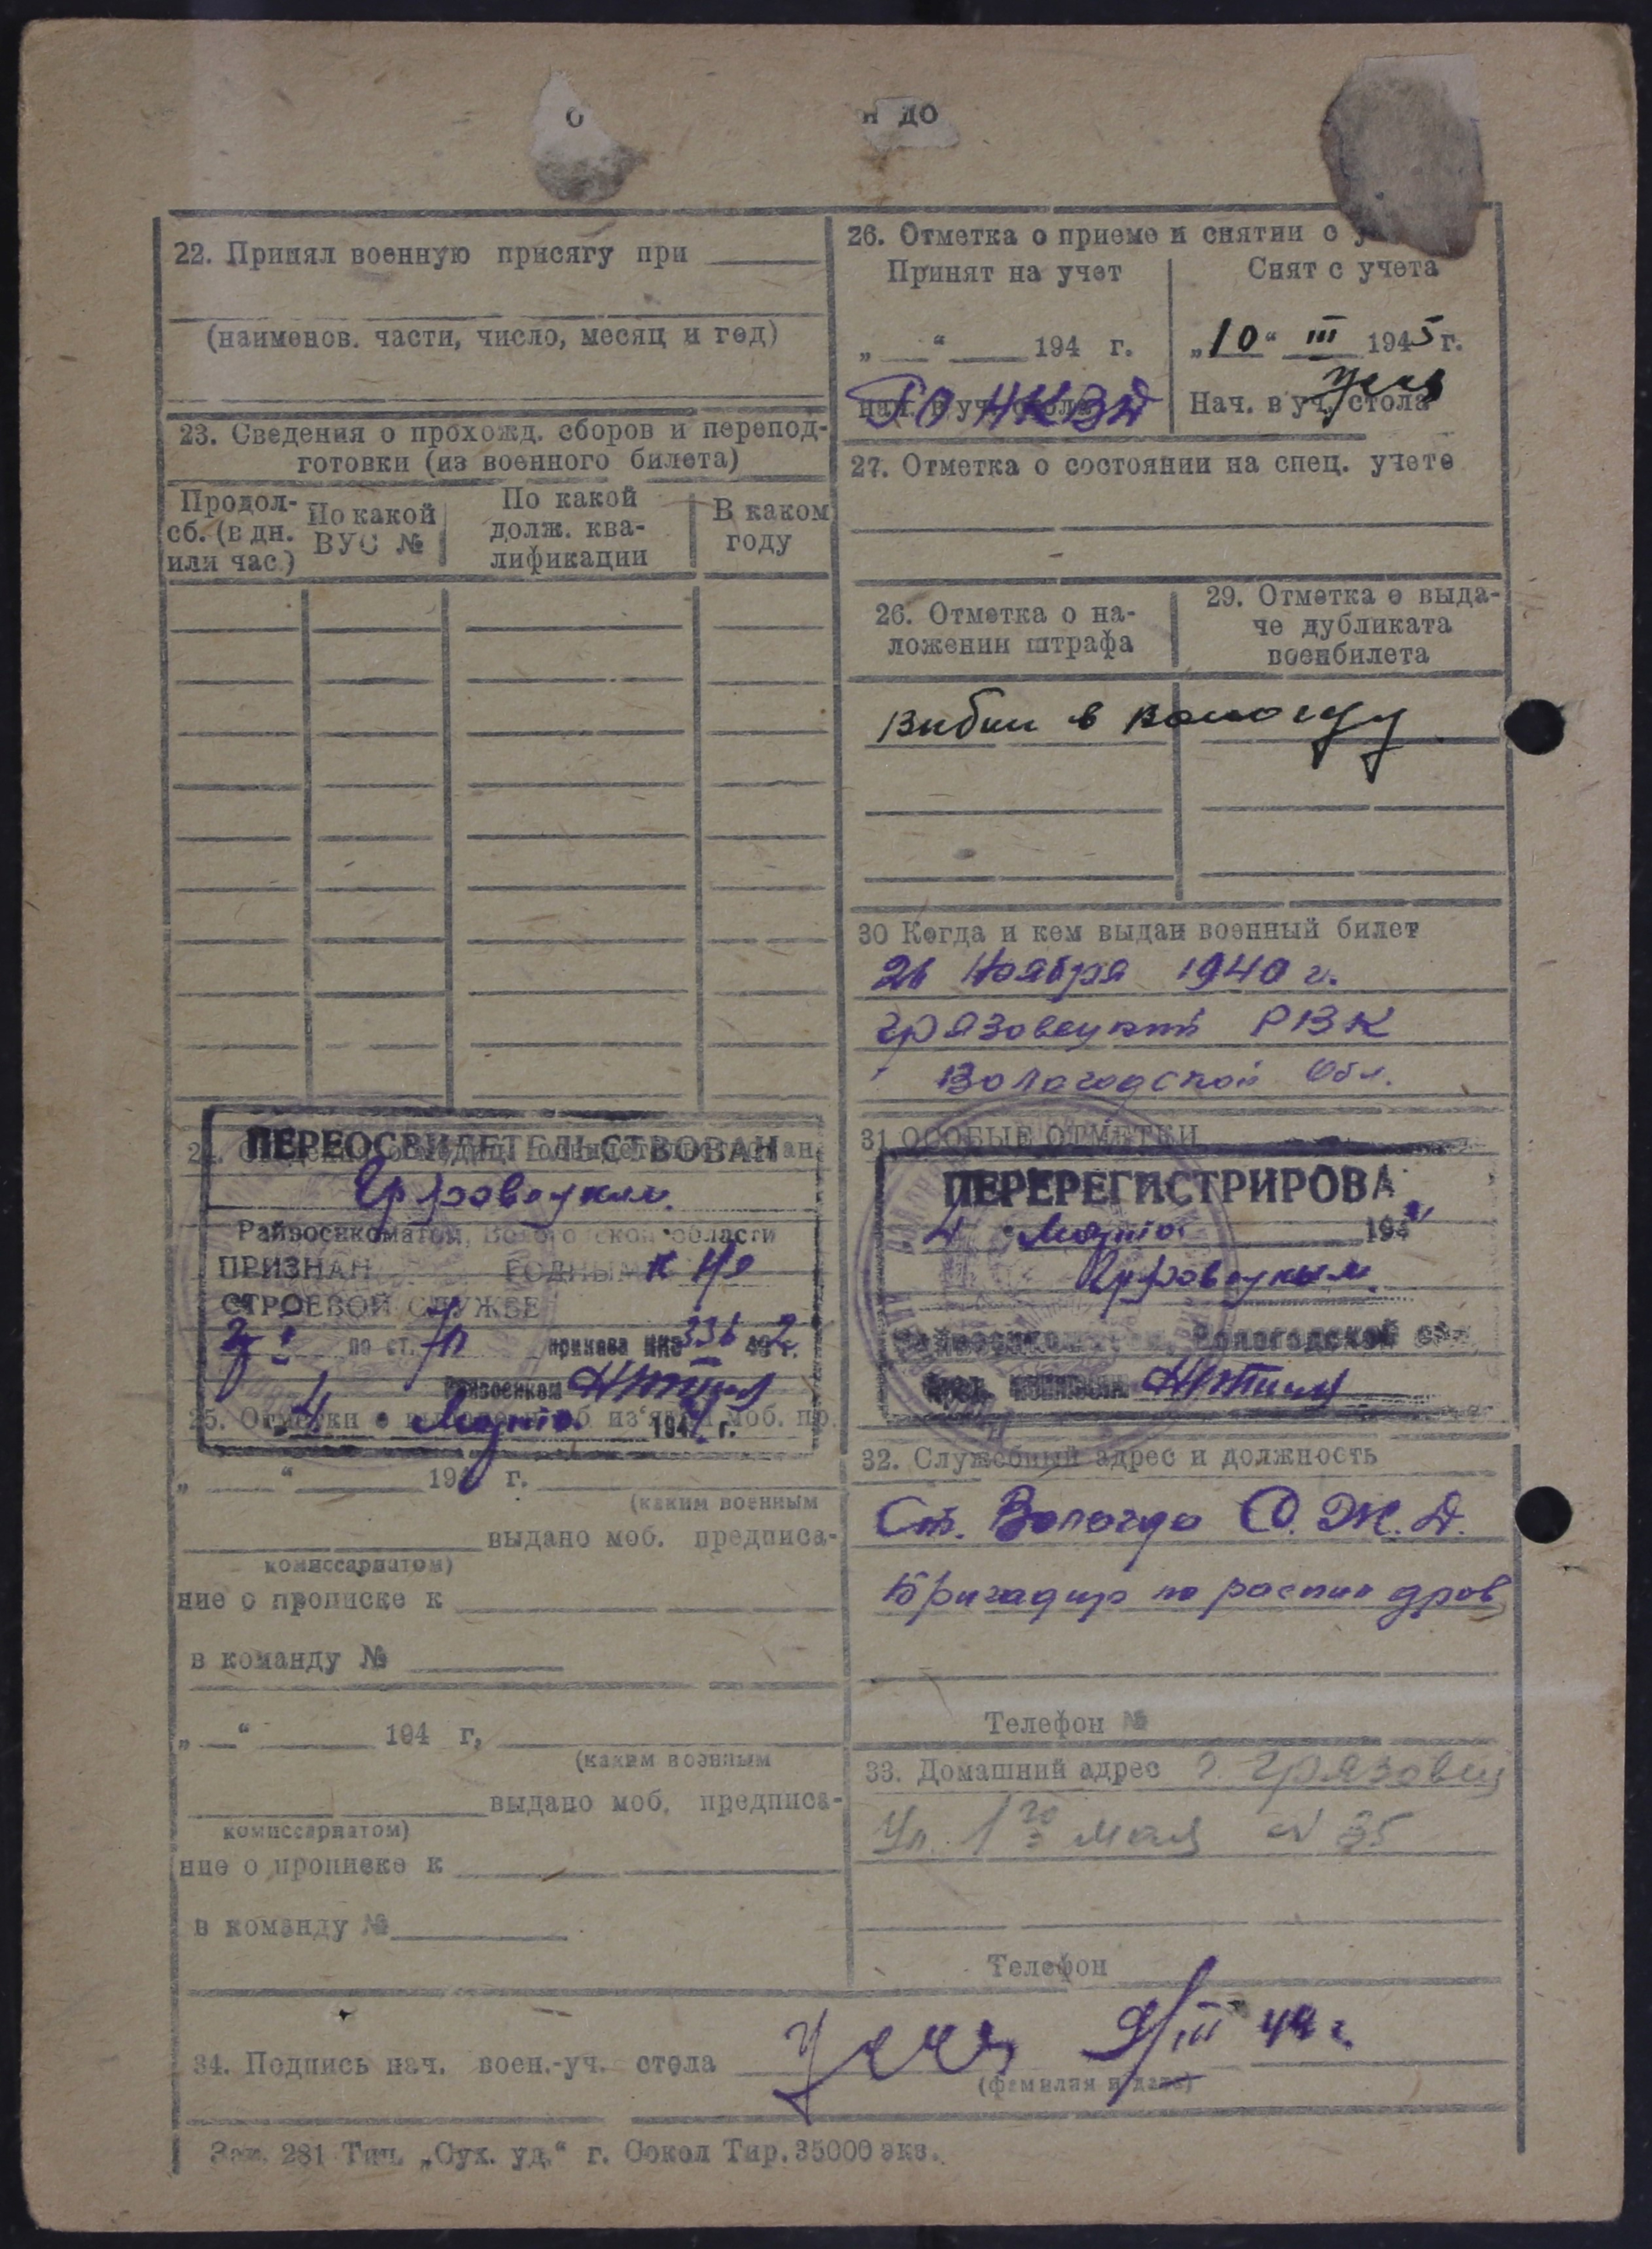 о
н до
22. Принял военную присягу при
(наименов. части, число, месяц и год)
23. Сведения о прохожд. сборов и перепод-
готовки (из военного билета)
Продол-
сб. (в дн.
или час.)
По какой
ВУС №
По какой
долж. ква-
лификации
В каком
году
ПЕРЕОСВИДЕТЕЛЬСТВОВАН
Грязовецким
Райвоенкоматом, Вологодской области
ПРИЗНАН ГОДНЫМ к не
СТРОЕВОЙ СЛУЖБЕ
по ст. приказа НКО 336 42 г.
Райвоенком
4 Марта 1944 г.
„ “ 194 г.
(каким военным
выдано моб. предписа-
комиссариатом)
ние о прописке к
в команду №
„ “ 194 г,
(каким военным
выдано моб. предписа-
комиссариатом)
ние о прописке к
в команду №
26. Отметка о приеме и снятии с у
Принят на учет
„ “ 194 г.
РО НКЗД
Снят с учета
„10“ III 1945 г.
Нач. в уч. стола
27. Отметка о состоянии на спец. учете
26. Отметка о на-
ложении штрафа
29. Отметка о выда-
че дубликата
военбилета
Выбыл в Вологду
30 Когда и кем выдан военный билет
26 Ноября 1940 г.
Грязовецкий РВК
Вологодской Обл.
31. ОСОБЫЕ ОТМЕТКИ
ПЕРЕРЕГИСТРИРОВА
4 Марта 194
Грязовецким
Райвоенкоматом, Вологодской обл.
32. Служебный адрес и должность
Ст. Вологда С. Ж. Д.
Бригадир по распил дров
Телефон №
33. Домашний адрес г. Грязовец
Ул. 1го мая № 35
Телефон
34. Подпись нач. воен.-уч. стола 9/III 44 г.
(фамилия и дата)
Зак. 281 Тип. „Сух. уд.“ г. Сокол Тир. 35000 экз.